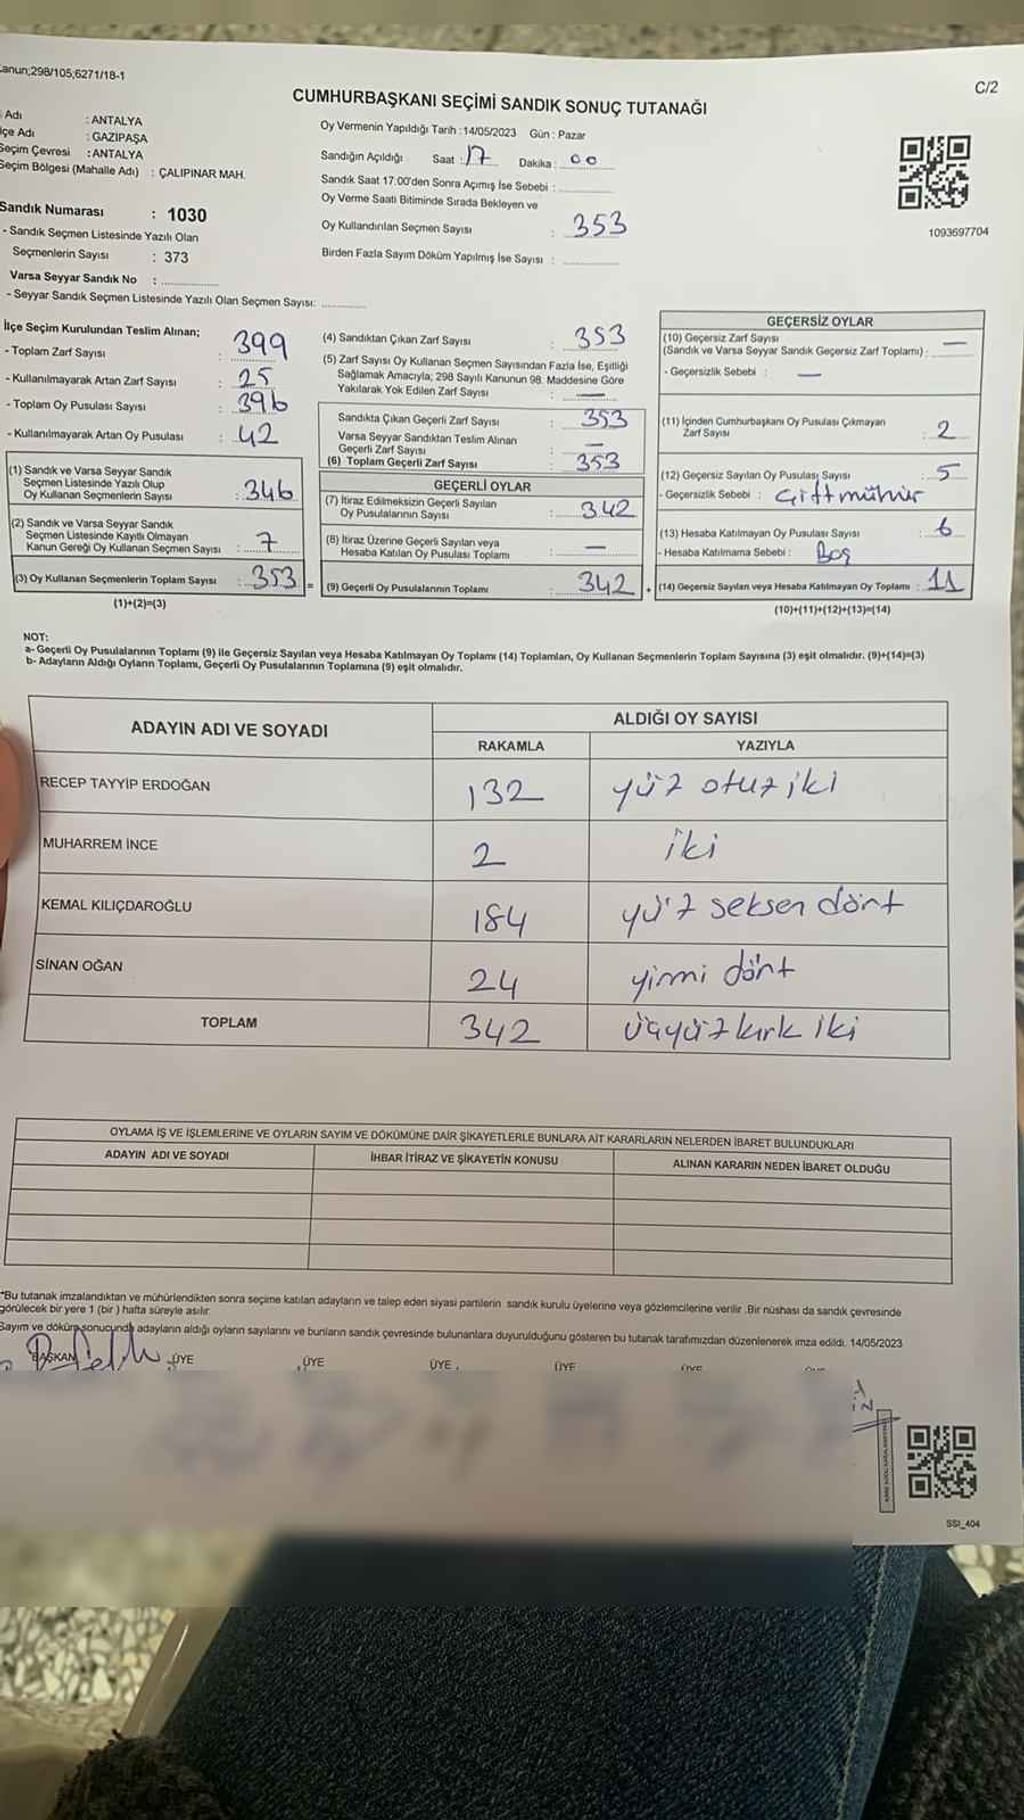 anun;298/105,6271/18-1
C/2
CUMHURBAŞKANI SEÇİMİ SANDIK SONUÇ TUTANAĞI
Adı : ANTALYA
çe Adı : GAZİPAŞA
Seçim Çevresi : ANTALYA
Seçim Bölgesi (Mahalle Adı) : ÇALIPINAR MAH.
Oy Vermenin Yapıldığı Tarih : 14/05/2023 Gün : Pazar
Sandığın Açıldığı Saat : 17 Dakika : 00
Sandık Saat 17:00'den Sonra Açımış İse Sebebi :
Oy Verme Saati Bitiminde Sırada Bekleyen ve
Oy Kullandırılan Seçmen Sayısı : 353
Birden Fazla Sayım Döküm Yapılmış İse Sayısı :
1093697704
Sandık Numarası : 1030
- Sandık Seçmen Listesinde Yazılı Olan
Seçmenlerin Sayısı : 373
Varsa Seyyar Sandık No :
- Seyyar Sandık Seçmen Listesinde Yazılı Olan Seçmen Sayısı:
İlçe Seçim Kurulundan Teslim Alınan;
- Toplam Zarf Sayısı : 399
- Kullanılmayarak Artan Zarf Sayısı : 25
- Toplam Oy Pusulası Sayısı : 396
- Kullanılmayarak Artan Oy Pusulası : 42
(1) Sandık ve Varsa Seyyar Sandık
Seçmen Listesinde Yazılı Olup
Oy Kullanan Seçmenlerin Sayısı : 346
(2) Sandık ve Varsa Seyyar Sandık
Seçmen Listesinde Kayıtlı Olmayan
Kanun Gereği Oy Kullanan Seçmen Sayısı : 7
(3) Oy Kullanan Seçmenlerin Toplam Sayısı : 353 =
(1)+(2)=(3)
(4) Sandıktan Çıkan Zarf Sayısı : 353
(5) Zarf Sayısı Oy Kullanan Seçmen Sayısından Fazla İse, Eşitliği
Sağlamak Amacıyla; 298 Sayılı Kanunun 98. Maddesine Göre
Yakılarak Yok Edilen Zarf Sayısı : —
Sandıkta Çıkan Geçerli Zarf Sayısı : 353
Varsa Seyyar Sandıktan Teslim Alınan
Geçerli Zarf Sayısı : —
(6) Toplam Geçerli Zarf Sayısı : 353
GEÇERLİ OYLAR
(7) İtiraz Edilmeksizin Geçerli Sayılan
Oy Pusulalarının Sayısı : 342
(8) İtiraz Üzerine Geçerli Sayılan veya
Hesaba Katılan Oy Pusulası Toplamı : —
(9) Geçerli Oy Pusulalarının Toplamı : 342 +
GEÇERSİZ OYLAR
(10) Geçersiz Zarf Sayısı
(Sandık ve Varsa Seyyar Sandık Geçersiz Zarf Toplamı) : —
- Geçersizlik Sebebi : —
(11) İçinden Cumhurbaşkanı Oy Pusulası Çıkmayan
Zarf Sayısı : 2
(12) Geçersiz Sayılan Oy Pusulası Sayısı : 5
- Geçersizlik Sebebi : Çift mühür
(13) Hesaba Katılmayan Oy Pusulası Sayısı : 6
- Hesaba Katılmama Sebebi : Boş
(14) Geçersiz Sayılan veya Hesaba Katılmayan Oy Toplamı : 11
(10)+(11)+(12)+(13)=(14)
NOT:
a- Geçerli Oy Pusulalarının Toplamı (9) ile Geçersiz Sayılan veya Hesaba Katılmayan Oy Toplamı (14) Toplamları, Oy Kullanan Seçmenlerin Toplam Sayısına (3) eşit olmalıdır. (9)+(14)=(3)
b- Adayların Aldığı Oyların Toplamı, Geçerli Oy Pusulalarının Toplamına (9) eşit olmalıdır.
ADAYIN ADI VE SOYADI ALDIĞI OY SAYISI
RAKAMLA YAZIYLA
RECEP TAYYİP ERDOĞAN 132 yüz otuz iki
MUHARREM İNCE 2 iki
KEMAL KILIÇDAROĞLU 184 yüz seksen dört
SİNAN OĞAN 24 yirmi dört
TOPLAM 342 üçyüz kırk iki
OYLAMA İŞ VE İŞLEMLERİNE VE OYLARIN SAYIM VE DÖKÜMÜNE DAİR ŞİKAYETLERLE BUNLARA AİT KARARLARIN NELERDEN İBARET BULUNDUKLARI
ADAYIN ADI VE SOYADI İHBAR İTİRAZ VE ŞİKAYETİN KONUSU ALINAN KARARIN NEDEN İBARET OLDUĞU
*Bu tutanak imzalandıktan ve mühürlendikten sonra seçime katılan adayların ve talep eden siyasi partilerin sandık kurulu üyelerine veya gözlemcilerine verilir .Bir nüshası da sandık çevresinde
görülecek bir yere 1 (bir ) hafta süreyle asılır.
Sayım ve döküm sonucunda adayların aldığı oyların sayılarını ve bunların sandık çevresinde bulunanlara duyurulduğunu gösteren bu tutanak tarafımızdan düzenlenerek imza edildi. 14/05/2023
BAŞKAN ÜYE ÜYE ÜYE ÜYE
SSI_404